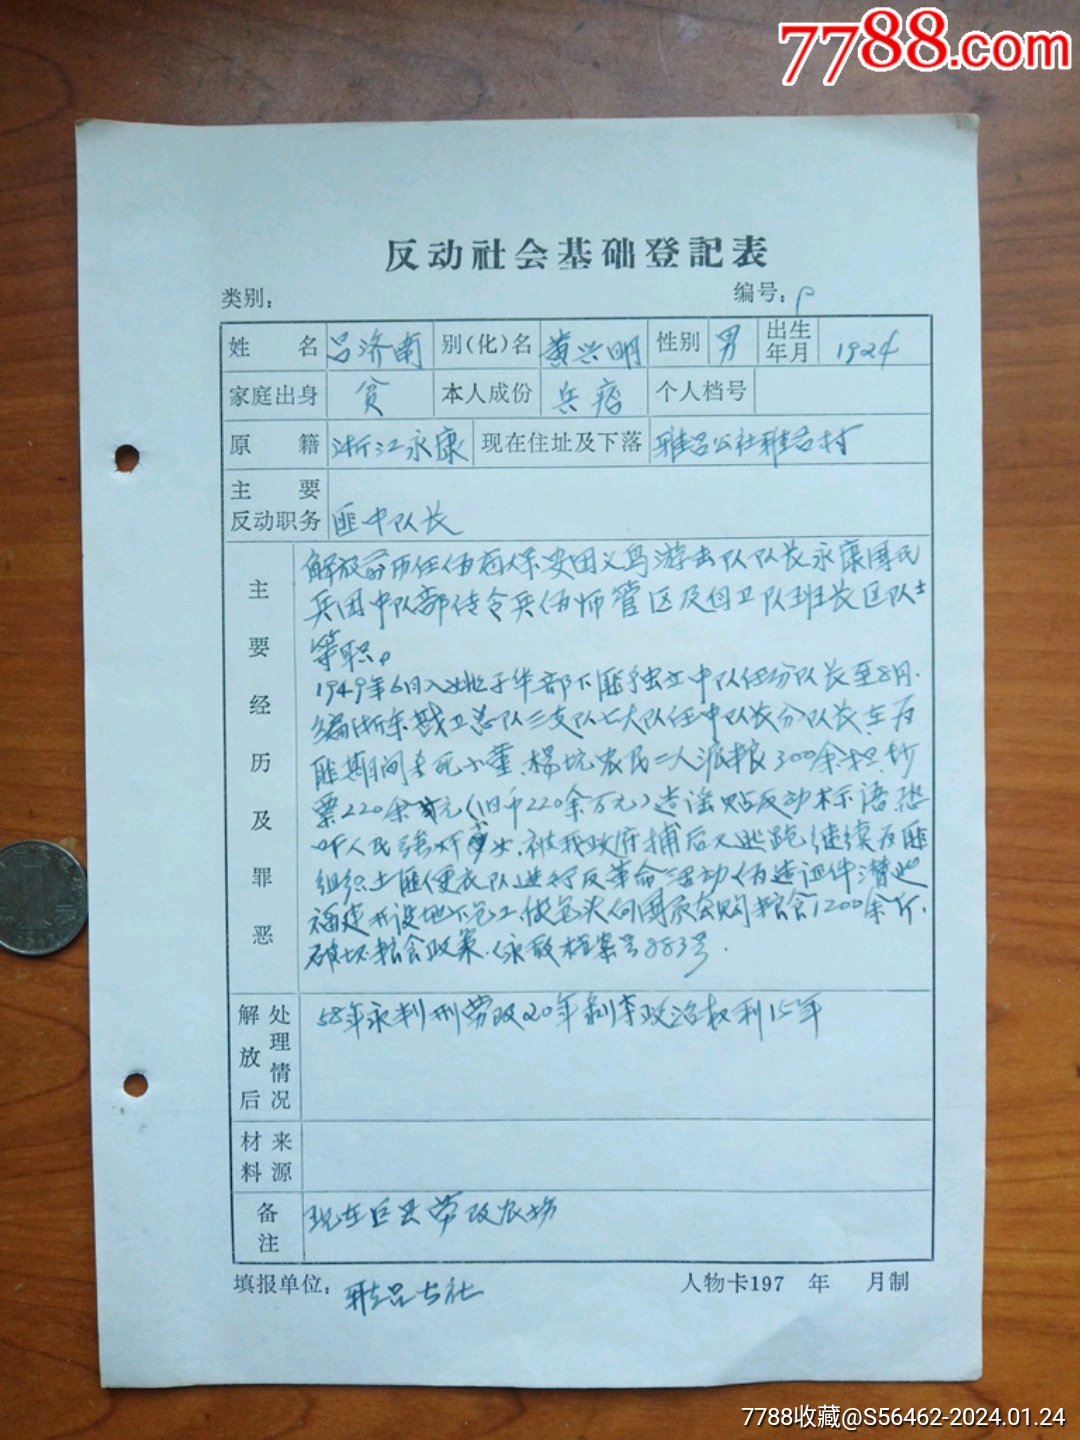 7788.com
反动社会基础登記表
类别： 编号：
姓名 吕济南 别(化)名 黄兴明 性别 男 出生年月 1924
家庭出身 贫 本人成份 兵痞 个人档号
原籍 浙江永康 现在住址及下落 雅吕公社雅吕村
主要反动职务 匪中队长
主要经历及罪恶
解放前历任伪 保安团义乌游击队队长永康国民
兵团中队部传令兵伪师管区及自卫队班长区队士
等职。
1949年6月入 部下匪独立中队任分队长至8月.
编浙东戡卫总队三支队七大队任中队长分队长在为
匪期间杀死小董、杨坑农民二人派粮300余 钞
票220余元(旧币220余万元)造谣贴反动标语恐
吓人民强奸妇女.被我政府捕后又逃跑继续为匪
组织土匪便衣队进行反革命活动伪造证件潜逃
福建私设地下包工.做包头向国家套购粮食1200余斤.
破坏粮食政策.(永敌档案号883号.
解放后处理情况 58年永判刑劳改20年剥夺政治权利15年
材料来源
备注 现在 县劳改农场
填报单位： 雅吕公社 人物卡197 年 月制
7788收藏@S56462-2024.01.24